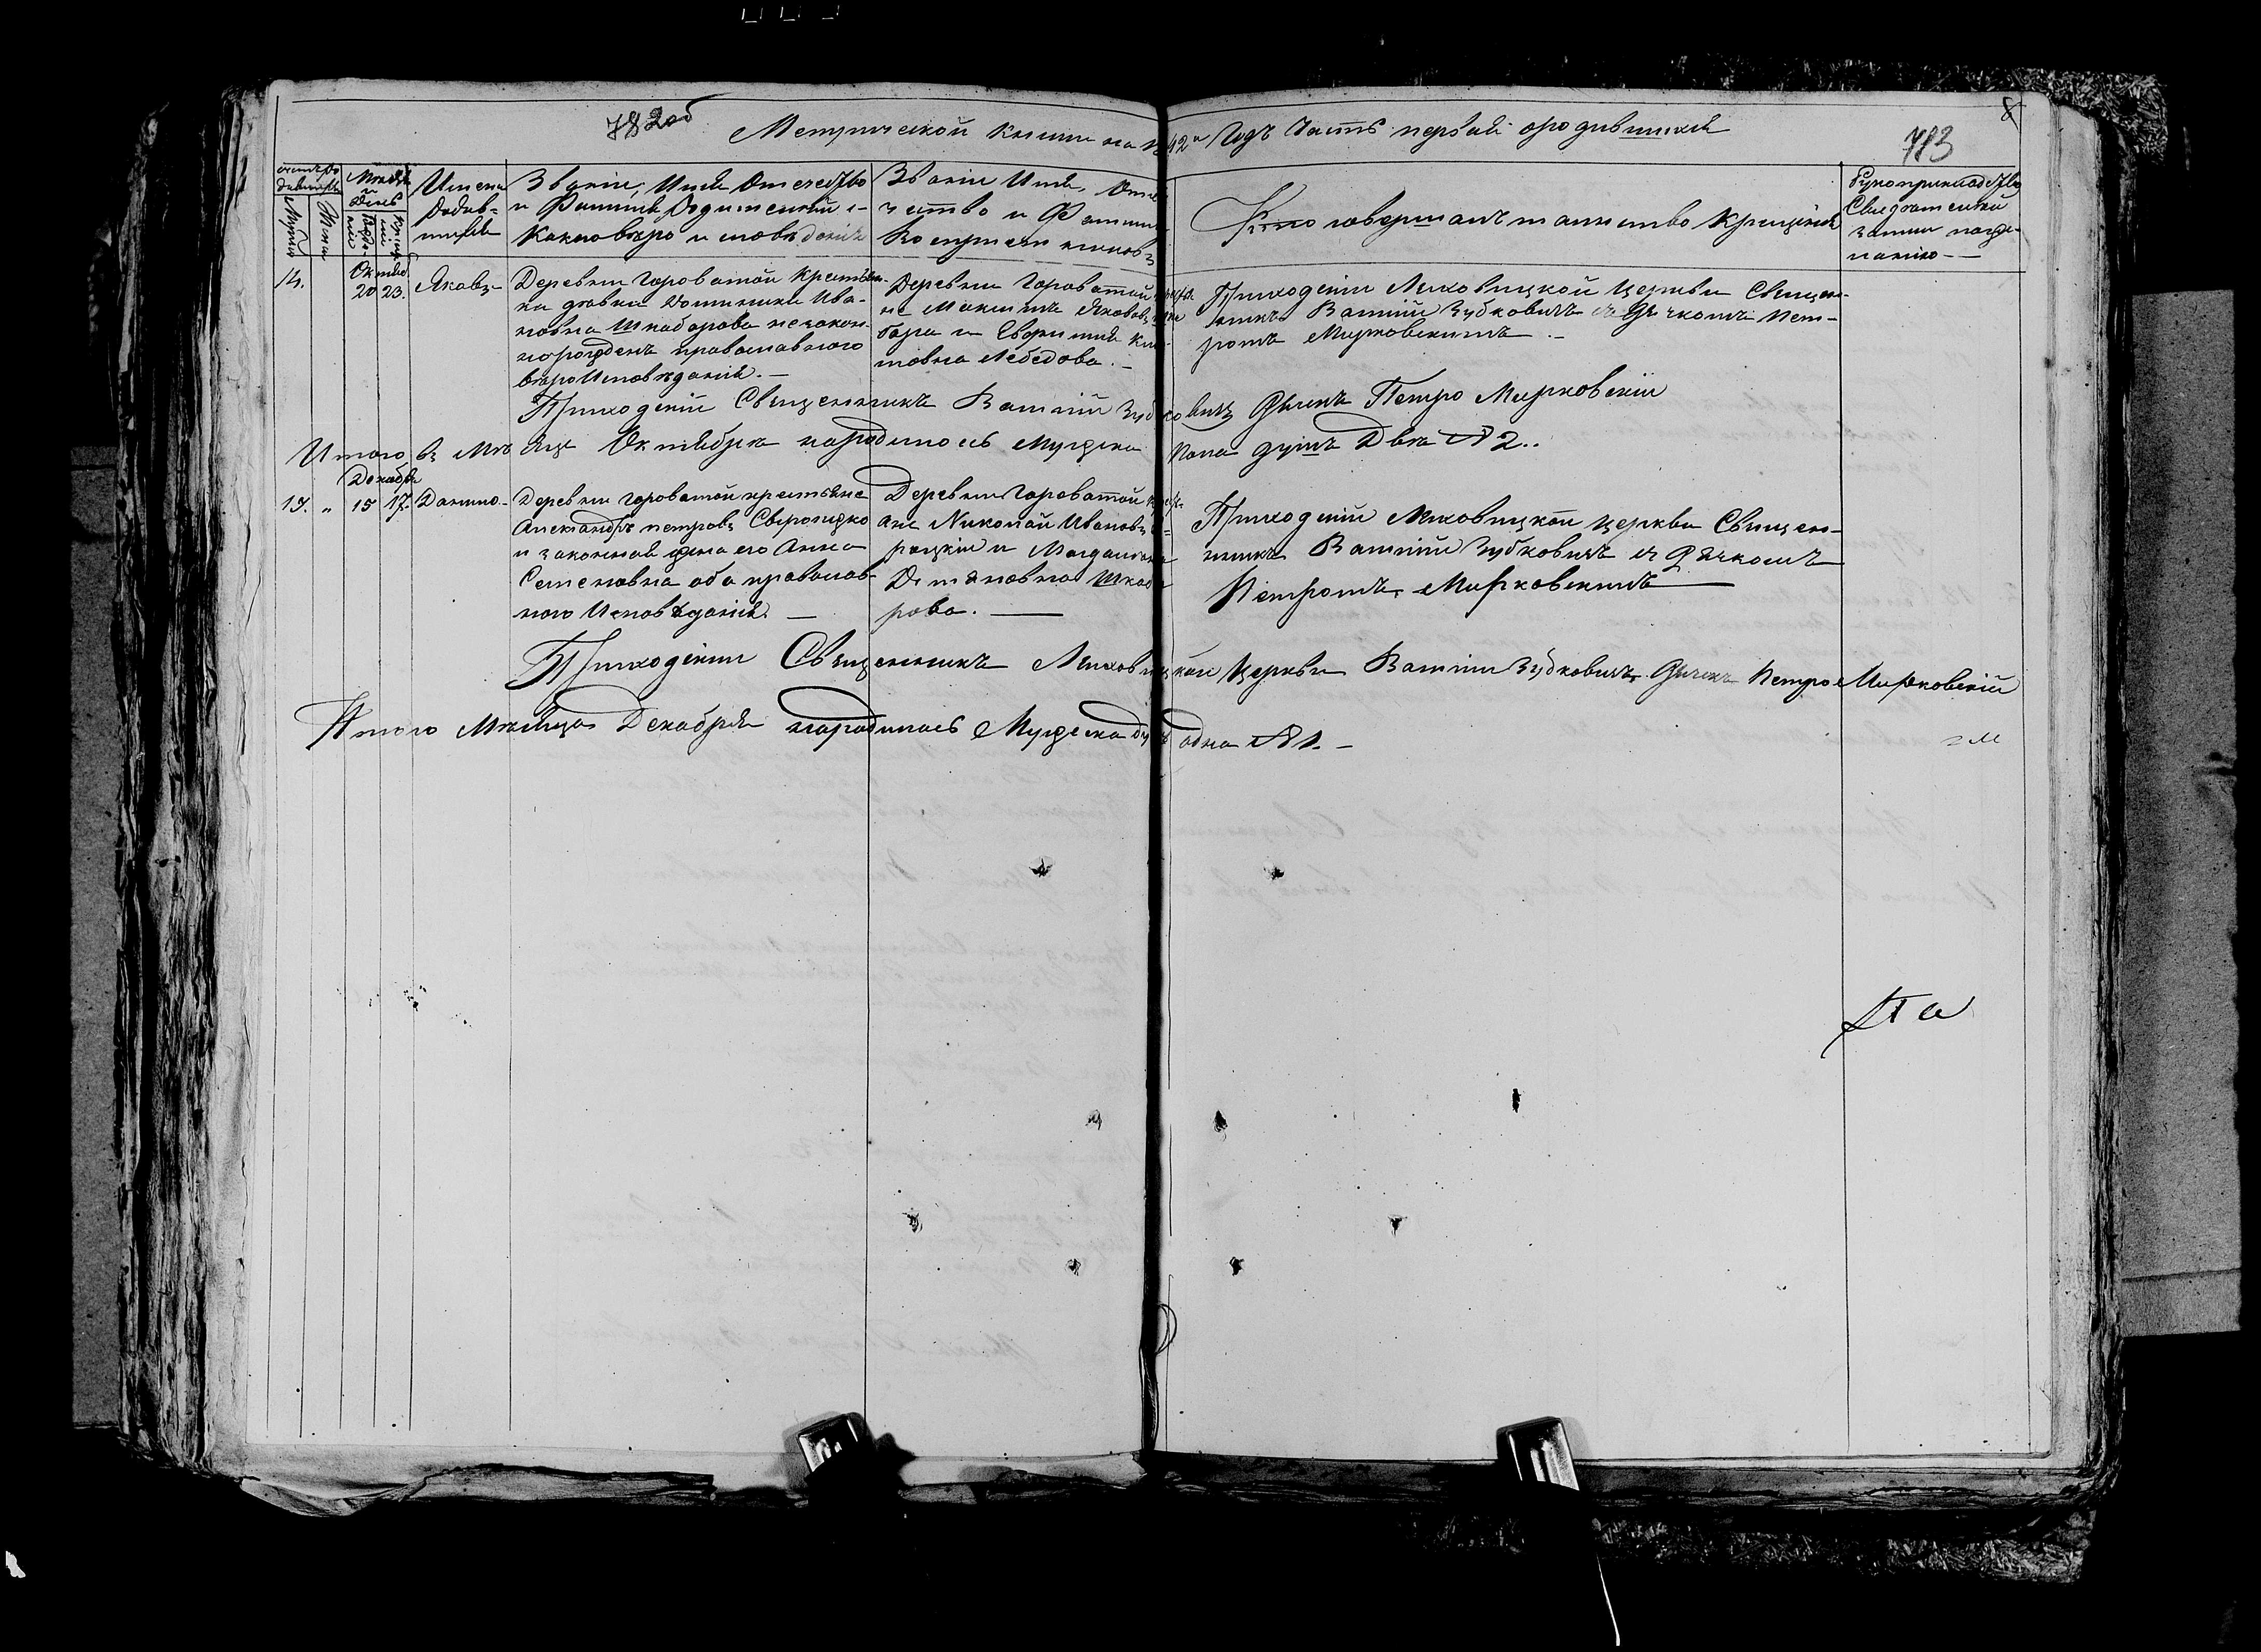 782об
8
Метрической книги на 1842й Годъ Часть первая о родившихся
783
счетъ родившихся
Мужеск
Женск
Месяцъ и день
Рождения
Крещения
Имена
Родив-
шихся
Званіе, Имя Отечество
и Фамилія Родителей и
Какого вѣроисповѣданія
Званіе Имя, Оте-
чество и Фамилія
Воспріемниковъ
Кто совершалъ таинство Крещенія
Рукоприкладство
Свидетелей
записи по же-
ланію
14.
Октяб.
20 23.
Яковъ
Деревни Гороватой Крестьян-
ка девка Доминика Ива-
новна Шкабарова незакон-
норожденъ православного
вѣроИсповѣданія.
Деревни Гороватой кресть-
не Максимъ Яковъ Шка-
бара и Евфимія
товна Лебедова.
Приходскій Ляховицкой Церкви Священ-
никъ Василій Зубковичъ съ Дьячкомъ Пет-
ромъ Мирковскимъ
Приходскій Священникъ Василій Зубковичъ Дьячекъ Петро Мирковскій
Итого въ Месяце Октябрѣ народилось Мужеска Пола душъ Двѣ № 2..
Декабря
15. „ 15 17. Данило
Деревни Гороватой крестьяне
Александръ петровъ
и законная жена его Анна
Семеновна оба православ-
ного Исповѣданія.
Деревни Гороватой кресть-
яне Николай Ивановъ
и Магдалина
Шкаба-
рова.
Приходскій Ляховицкой церкви Священ-
никъ Василій Зубковичъ съ Дьячкомъ
Петромъ Мирковскимъ
Приходскій Священникъ Ляховицкой Церкви Василій Зубковичъ Дьячекъ Петро Мирковскій
Итого Месяца Декабря народилось Мужеска душъ одна № 1.